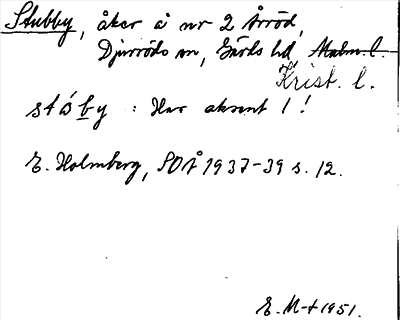 Stubby, åker å nr 2 Årröd,
Djurröds sn, Gärds hd, Malm. l.
Krist. l.
stóby : Har aksent 1 !
E. Holmberg, SOÅ 1937-39 s. 12.
E. M-t 1951.